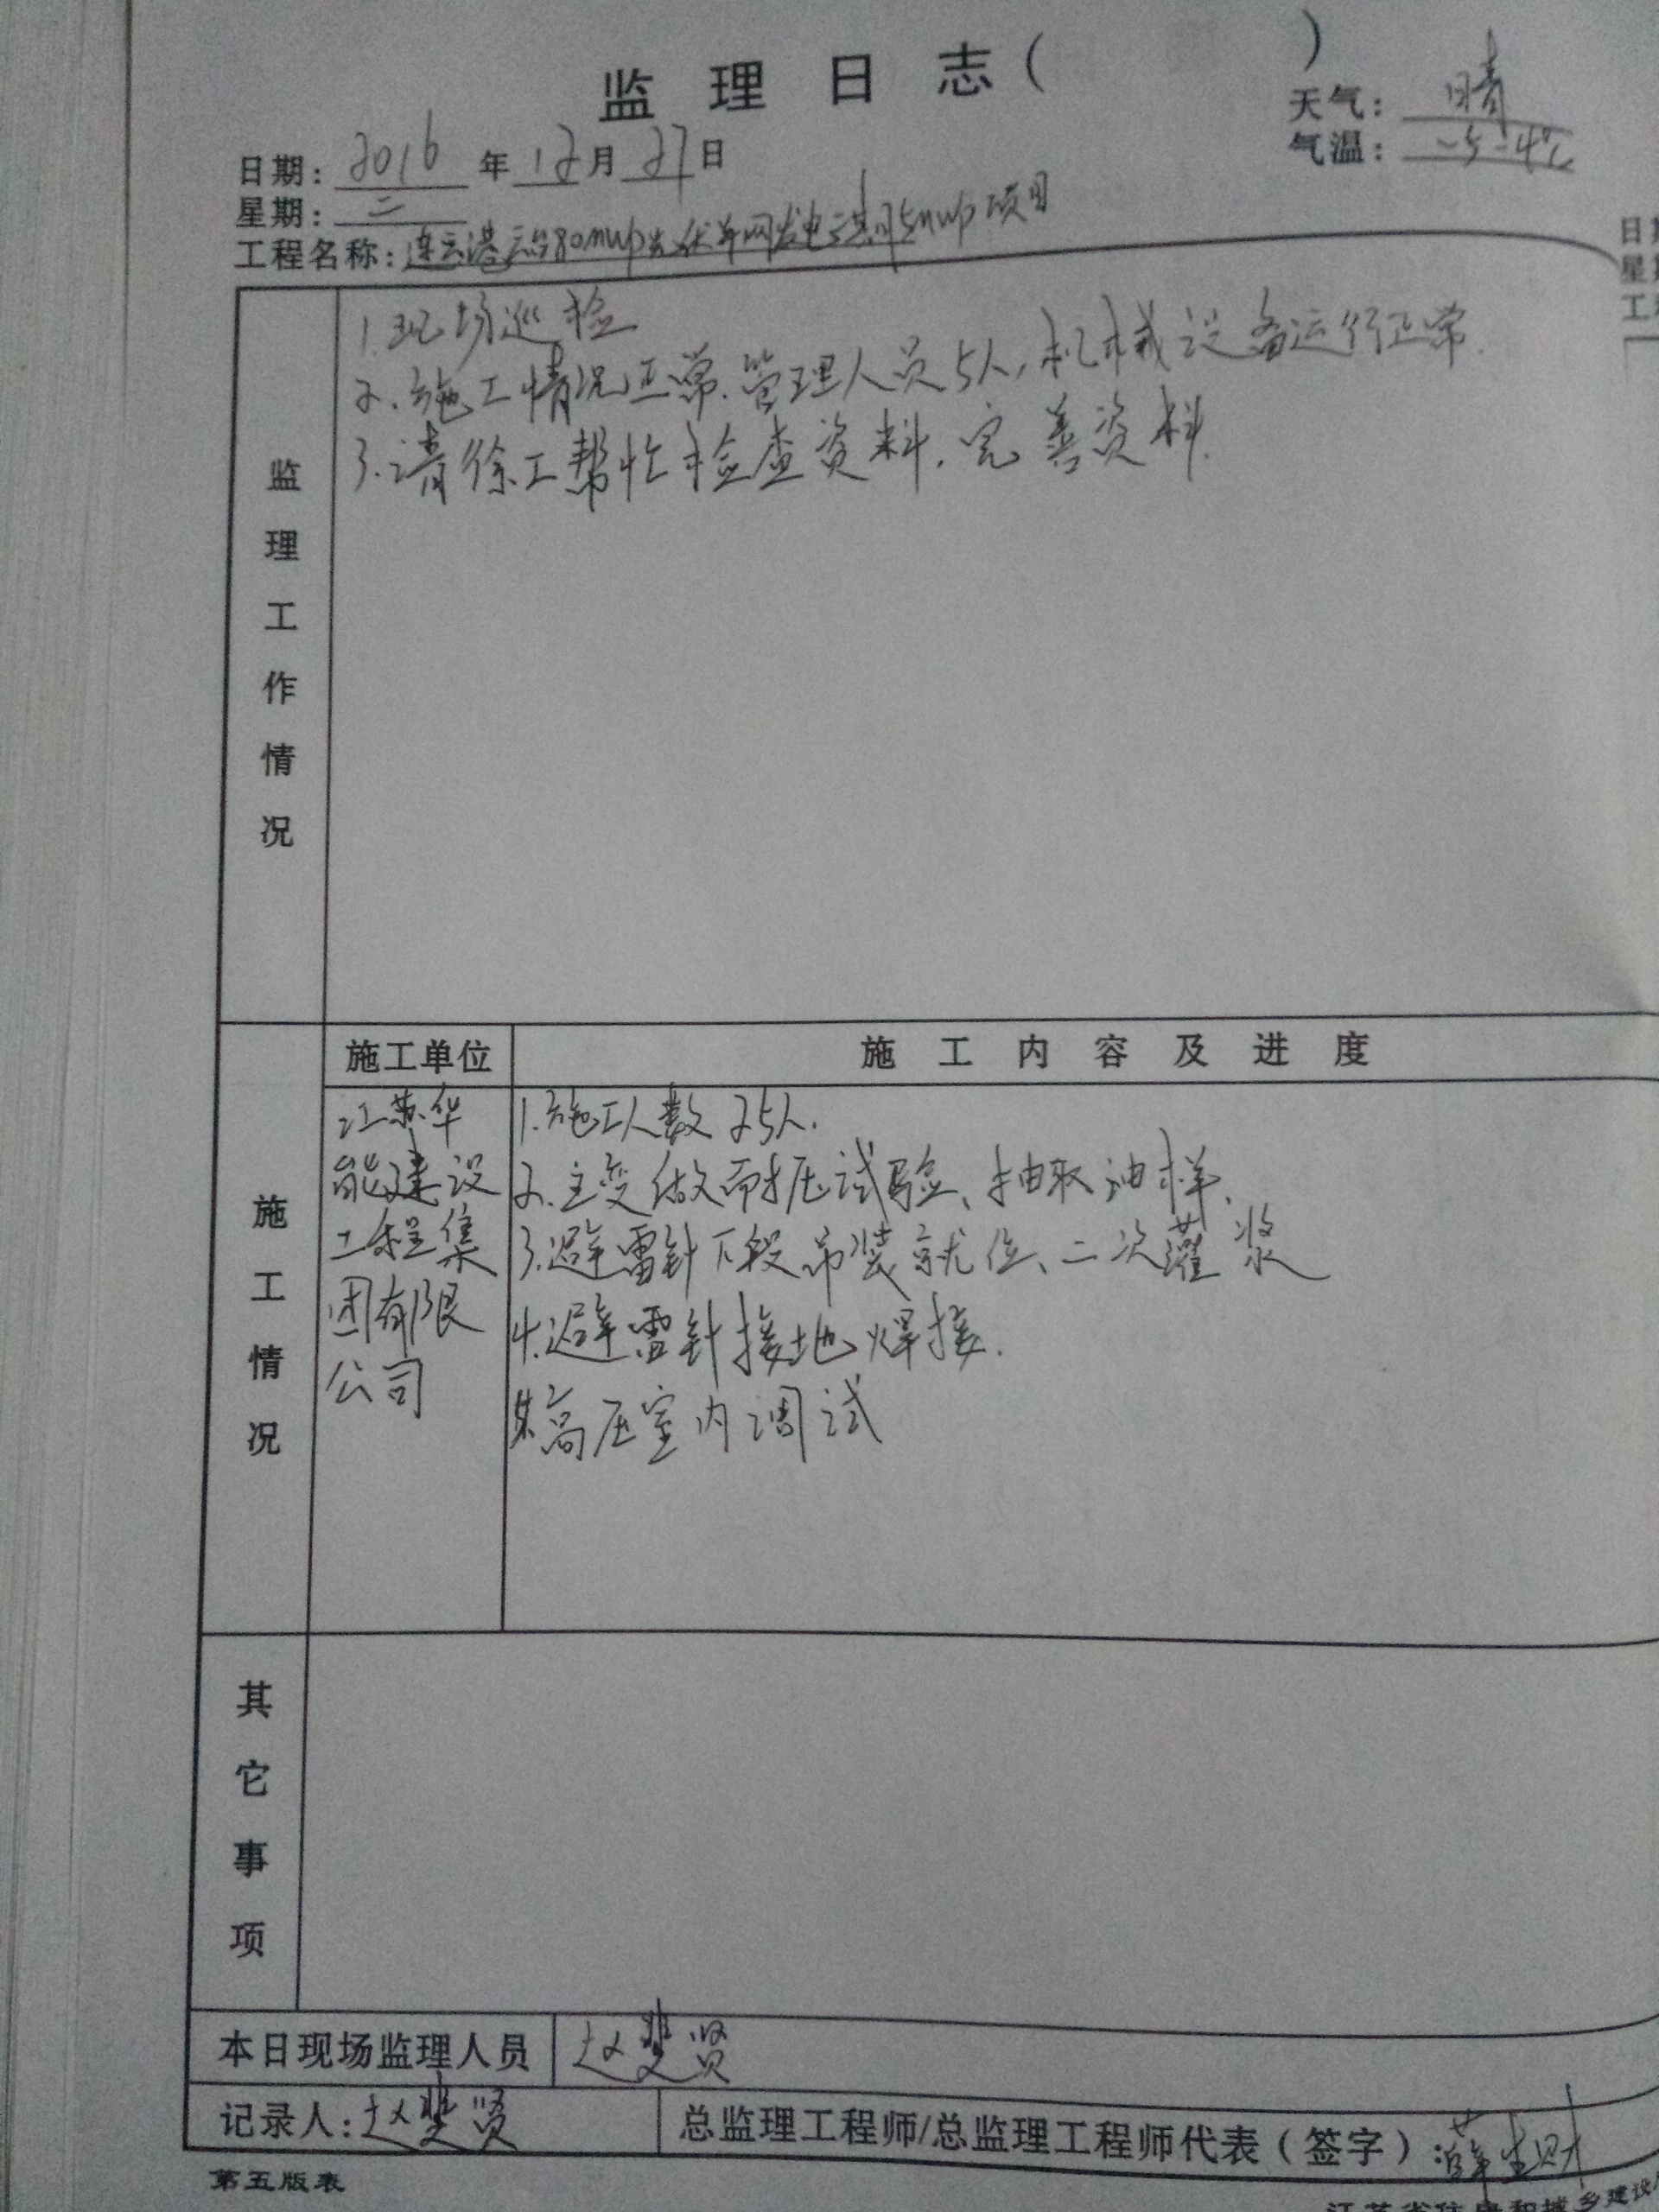 监理日志( )
天气: 晴
日期: 2016 年 12 月 27 日
气温: -5-4℃
星期: 二
工程名称: 连云港 80mwp光伏并网发电二期5mwp项目
监理工作情况
1.现场巡检
2.施工情况正常.管理人员5人,机械设备运行正常.
3.请徐工帮忙检查资料.完善资料.
施工单位
施工内容及进度
施工情况
江苏华
能建设
工程集
团有限
公司
1.施工人数25人.
2.主变做耐压试验、抽取油样.
3.避雷针下段吊装就位、二次灌浆
4.避雷针接地焊接.
高压室内调试
其它事项
本日现场监理人员 赵 贤
记录人: 赵 贤
总监理工程师/总监理工程师代表(签字): 薛生财
第五版表
日
星
工